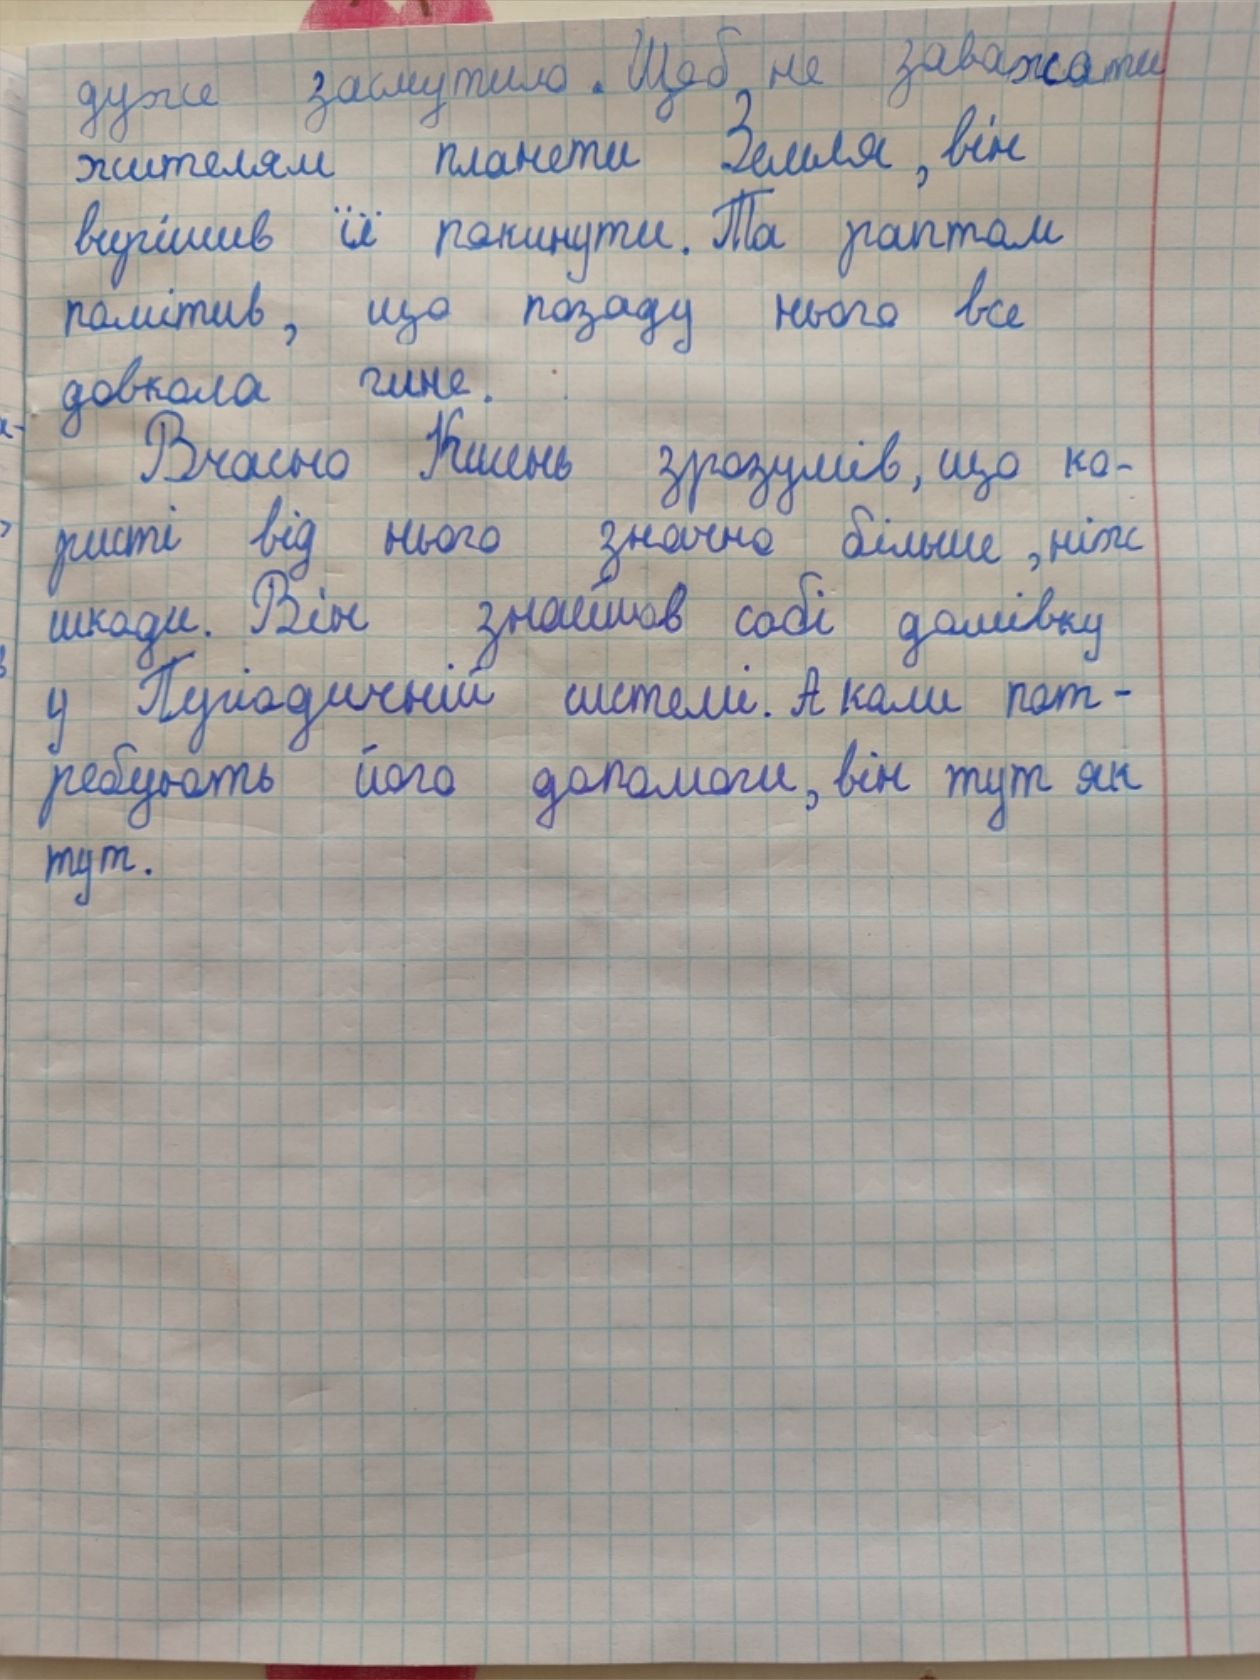 дуже засмутило. Щоб не заважати
жителям планети Земля, він
вирішив її покинути. Та раптом
помітив, що позаду нього все
довкола гине.
Вчасно Кисень зрозумів, що ко-
ристі від нього значно більше, ніж
шкоди. Він знайшов собі домівку
у Періодичній системі. А коли пот-
ребують його допомоги, він тут як
тут.